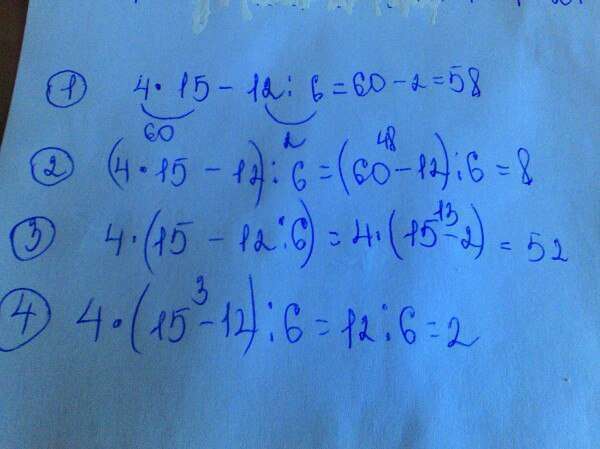 1 4·15-12:6=60-2=58
60 2
2 (4·15-12):6=(60-12):6=8
48
3 4·(15-12:6)=4·(15-2)=52
13
4 4·(15-12):6=12:6=2
3